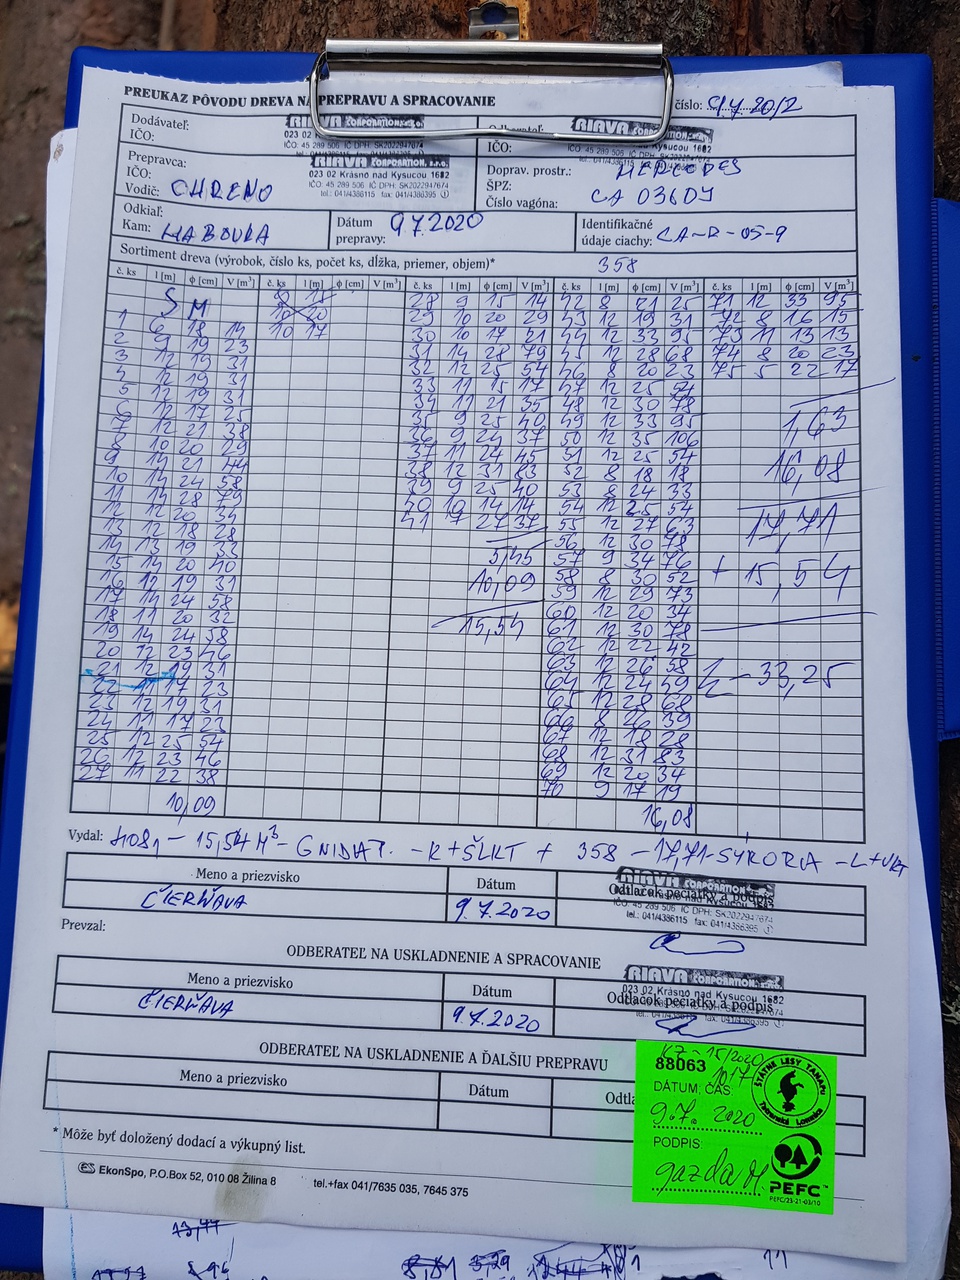 PREUKAZ PÔVODU DREVA NA PREPRAVU A SPRACOVANIE
číslo: 9.7.20/2
Dodávateľ:
IČO:
RIAVA CORPORATION, s.r.o.
023 02 Krásno nad Kysucou 1682
IČO: 45 289 506 IČ DPH: SK2022947674
tel.: 041/4386115 fax: 041/4386395
Odberateľ:
IČO:
RIAVA CORPORATION
Prepravca:
IČO:
Vodič: CHRENO
Doprav. prostr.: MERCEDES
ŠPZ:
Číslo vagóna: CA 036DJ
Odkiaľ:
Kam: HABOVKA
Dátum
prepravy: 9.7.2020
Identifikačné
údaje ciachy: CA-R-05-9
Sortiment dreva (výrobok, číslo ks, počet ks, dĺžka, priemer, objem)*
358
č. ks l [m] ϕ [cm] V [m³] č. ks l [m] ϕ [cm] V [m³] č. ks l [m] ϕ [cm] V [m³] č. ks l [m] ϕ [cm] V [m³] č. ks l [m] ϕ [cm] V [m³]
SM
10 17
1 6 18 14
2 9 19 23
3 12 19 31
4 12 19 31
5 12 19 31
6 12 17 25
7 12 21 38
8 10 20 29
9 14 21 44
10 14 24 58
11 14 28 79
12 12 20 34
13 12 18 28
14 13 19 33
15 14 20 40
16 12 19 31
17 14 24 58
18 11 20 32
19 14 24 58
20 12 23 46
21 12 19 31
22 11 17 23
23 12 19 31
24 11 17 23
25 12 25 54
26 12 23 46
27 11 22 38
10,09
28 9 15 14
29 10 20 29
30 10 17 21
31 14 28 79
32 12 25 54
33 11 15 17
34 11 21 35
35 9 25 40
36 9 24 37
37 11 24 45
38 12 31 83
39 9 25 40
40 10 14 14
41 17 37
5,45
10,09
15,54
42 8 21 25
43 12 19 31
44 12 33 95
45 12 28 68
46 8 20 23
47 12 25 54
48 12 30 78
49 12 33 95
50 12 35 106
51 12 25 54
52 8 18 18
53 8 24 33
54 12 25 54
55 12 27 63
56 12 30 78
57 9 34 76
58 8 30 52
59 12 29 73
60 12 20 34
61 12 30 78
62 12 22 42
63 12 26 58
64 12 24 59
65 12 28 68
66 8 26 39
67 12 18 28
68 12 31 83
69 12 20 34
70 9 17 19
16,08
71 12 33 95
72 8 16 15
73 11 13 13
74 8 20 23
75 5 22 17
1,63
16,08
17,71
+ 15,54
33,25
Vydal: 4081 - 15,54 M³ - GNIDIAT. - K+ŠLKT + 358 - 17,71 - SYKORA
Meno a priezvisko
Dátum
Odtlačok pečiatky a podpis
ČIERŇAVA
9.7.2020
RIAVA CORPORATION
IČO: 45 289 506 IČ DPH: SK2022947674
tel.: 041/4386115 fax: 041/4386395
Prevzal:
ODBERATEĽ NA USKLADNENIE A SPRACOVANIE
Meno a priezvisko
Dátum
Odtlačok pečiatky a podpis
ČIERŇAVA
9.7.2020
RIAVA CORPORATION, s.r.o.
023 02 Krásno nad Kysucou 1682
ODBERATEĽ NA USKLADNENIE A ĎALŠIU PREPRAVU
Meno a priezvisko
Dátum
KZ-15/2020
88063 1017
DÁTUM: ČAS:
9.7. 2020
PODPIS:
gazda M
ŠTÁTNE LESY TANAPU
Tatranská Lomnica
PEFC™
PEFC/23-21-03/10
* Môže byť doložený dodací a výkupný list.
ES EkonSpo, P.O.Box 52, 010 08 Žilina 8 tel.+fax 041/7635 035, 7645 375